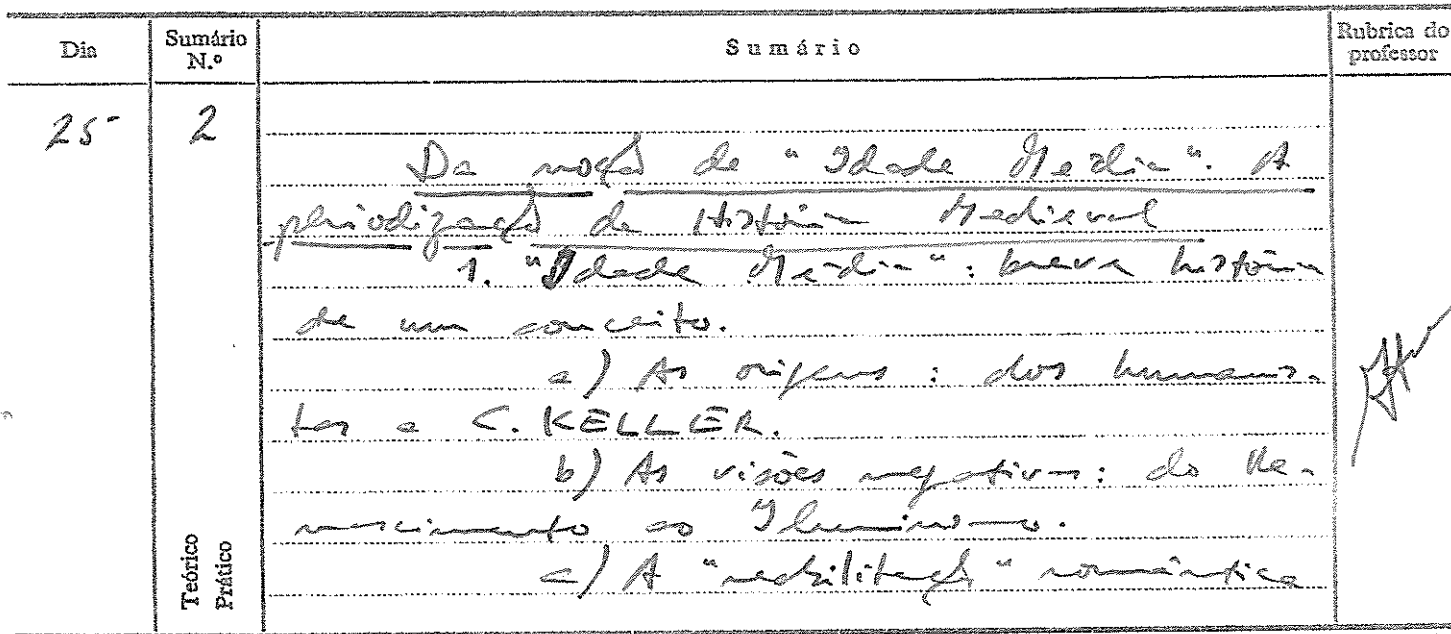 Dia
Sumário N.º
Sumário
Rubrica do professor
25
2
Da noção de "Idade Média". A
periodização da História Medieval
1. "Idade Média": breve história
de um conceito.
a) As origens: dos humanis-
tas a C. KELLER.
b) As visões negativas: do Re-
nascimento ao Iluminismo.
c) A "reabilitação" romântica
Teórico
Prático